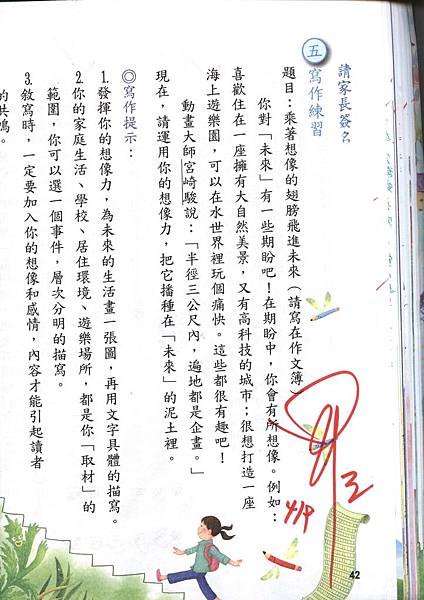 請家長簽名
五 寫作練習
題目：乘著想像的翅膀飛進未來（請寫在作文簿）
你對「未來」有一些期盼吧！在期盼中，你會有所想像。例如：
喜歡住在一座擁有大自然美景，又有高科技的城市；很想打造一座
海上遊樂園，可以在水世界裡玩個痛快。這些都很有趣吧！
動畫大師宮崎駿說：「半徑三公尺內，遍地都是企畫。」
現在，請運用你的想像力，把它播種在「未來」的泥土裡。
◎寫作提示：
1.發揮你的想像力，為未來的生活畫一張圖，再用文字具體的描寫。
2.你的家庭生活、學校、居住環境、遊樂場所，都是你「取材」的
範圍，你可以選一個事件，層次分明的描寫。
3.敘寫時，一定要加入你的想像和感情，內容才能引起讀者
的共鳴。
42